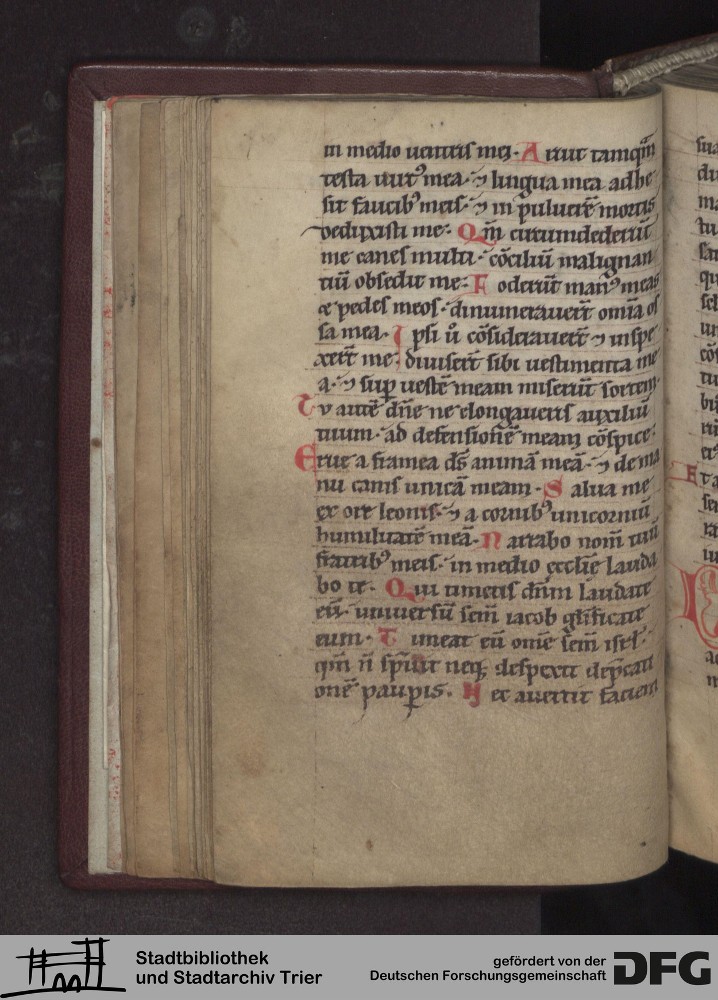 in medio uentris mei. Aruit tamqm̄
testa uirt᷒ mea. ⁊ lingua mea adhe
sit faucib᷒ meis. ⁊ in puluerē mortis
dedixisti me. Qm̄ circumdederūt
me canes multi. cōciliū malignan
tiū obsedit me. Foderūt man᷒ meas
et pedes meos. dinumerauer̄t omīa os
sa mea. Ipsi ů cōsiderauer̄t ⁊ inspe
xer̄t me. diuiser̄t sibi uestimenta me
a. ⁊ sup̱ uestē meam miserūt sortem.
Tv autē dn̄e ne elongaueris auxiliū
tuum. ad defensionē meam cōspice.
Erue a framea ds̄ animā meā. ⁊ de ma
nu canis unicā meam. Salua me
ex ore leonis. ⁊ a cornib᷒ unicorniū
humilitatē meā. Narrabo nom̄ tuū
fratrib᷒ meis. in medio ecclīe lauda
bo te. Qui timetis dn̄m laudate
eū. uniuersū sem̄ iacob gl̄ificate
eum. Timeat eū om̄e sem̄ isrl̄.
qm̄ n̄ spreuit neq; despexit dep̄cati
onē paup̱is. N ec auertit faciem
Stadtbibliothek
und Stadtarchiv Trier
gefördert von der
Deutschen Forschungsgemeinschaft
DFG